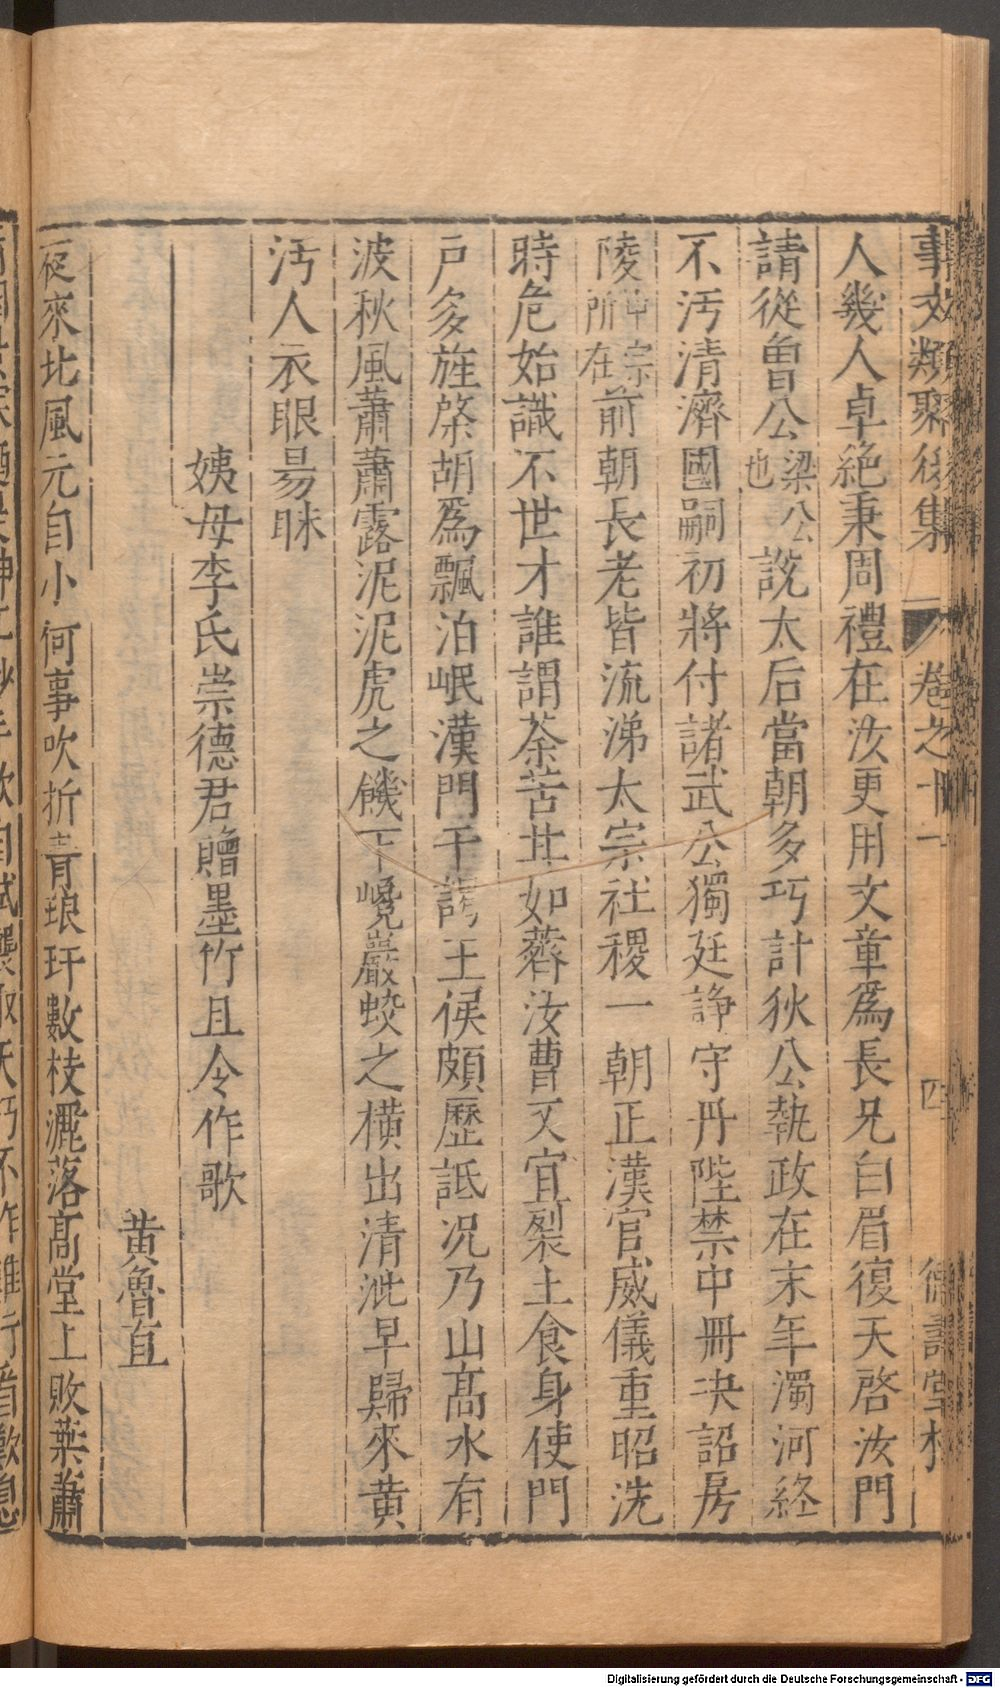 事文類聚後集 卷之十一 四 德壽堂梓
人幾人卓絶秉周禮在汝更用文章爲長兄白眉復天啓汝門
請從曾公梁公也說太后當朝多巧計狄公執政在末年濁河終
不汚清濟國嗣初將付諸武公獨廷諍守丹陛禁中冊決詔房
陵中宗所在前朝長老皆流涕太宗社稷一朝正漢官威儀重昭洗
時危始識不世才誰謂荼苦甘如薺汝曹又宜裂土食身使門
戶多旌棨胡爲飄泊岷漢門干謁王侯頗歷詆況乃山髙水有
波秋風蕭蕭露泥泥虎之饑下巉巖蛟之橫出清泚早歸來黄
汚人衣眼易眯
姨母李氏崇德君贈墨竹且令作歌
黄魯直
夜來北風元自小何事吹折青琅玕數枝灑落髙堂上敗葉蕭
Digitalisierung gefördert durch die Deutsche Forschungsgemeinschaft - DFG